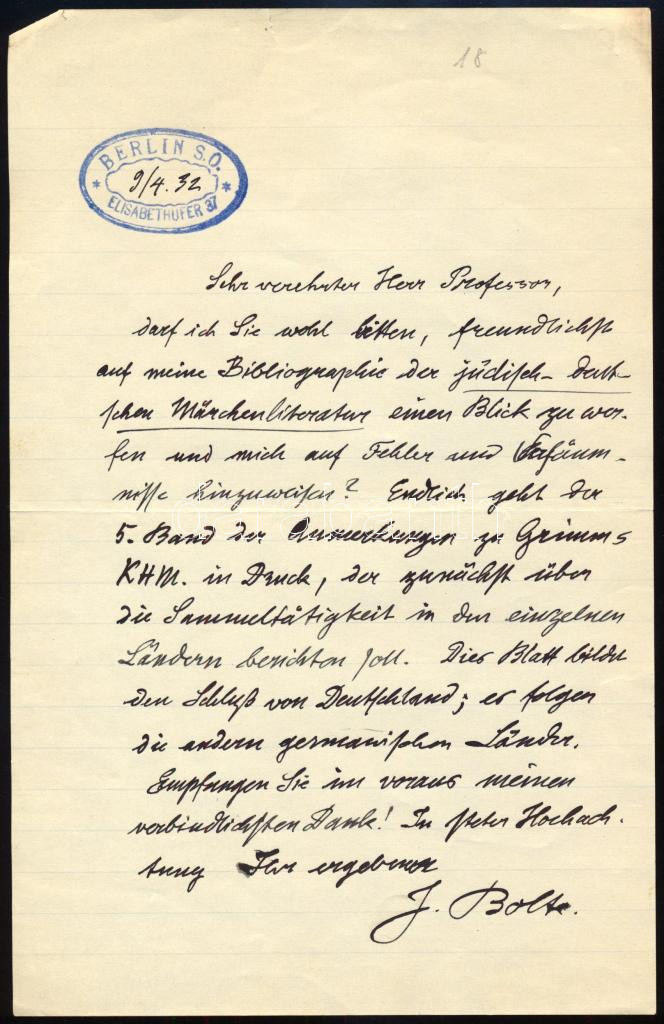 18
BERLIN S.O.
9/4. 32
ELISABETHUFER 37
Sehr verehrter Herr Professor,
darf ich Sie wohl bitten, freundlichst
auf meine Bibliographie der jüdisch-deut-
schen Märchenliteratur einen Blick zu wer-
fen und mich auf Fehler und Versäum-
nisse hinzuweisen? Endlich geht der
5. Band der Anmerkungen zu Grimms
KHM. in Druck, der zunächst über
die Sammeltätigkeit in den einzelnen
Ländern berichten soll. Dies Blatt bildet
den Schluß von Deutschland; es folgen
die andern germanischen Länder.
Empfangen Sie im voraus meinen
verbindlichsten Dank! In steter Hochach-
tung Ihr ergebener
J. Bolte.